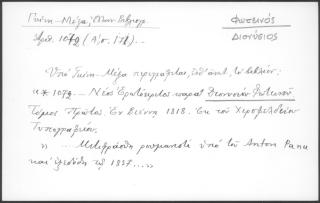 Γκίνη - Μέξα, Ελλην. Βιβλιογρ.
Αριθ. 1072 (Α/σ. 171)...
Φωτεινός
Διονύσιος
Υπό Γκίνη - Μέξα περιγράφεται, υπ' αριθ., το βιβλίον:
« * 1072 - Νέος Ερωτόκριτος παρά Διονυσίου Φωτεινού
Τόμος Πρώτος. Εν Βιέννη 1818. Εκ του
Τυπογραφείου.
» ... Μετεφράσθη ρωμανιστί υπό του Anton Pann
και εξεδόθη τω 1837...»